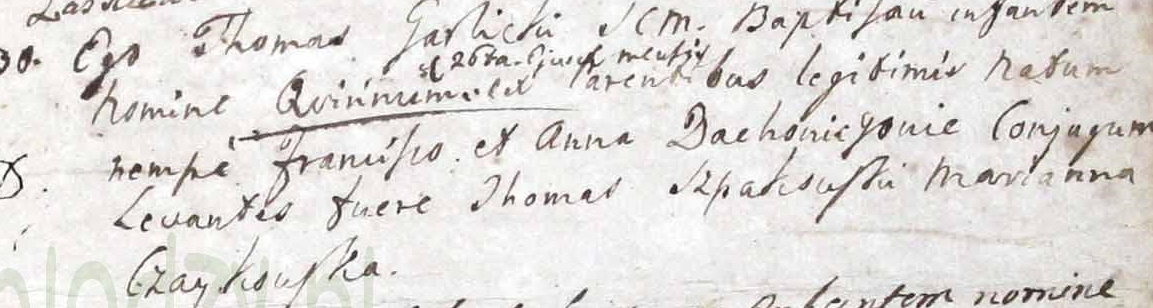 30. Ego Thomas Garlicki SCM. Baptisavi infantem
26ta Ejusd mensis
nomine Qvirinum ex Parentibus legitimis natum
nempe Francisco et Anna Dachonicyonie Conjugum
Levantes fuere Thomas Szpakouski Marianna
Czaykouska.
infantem nomine